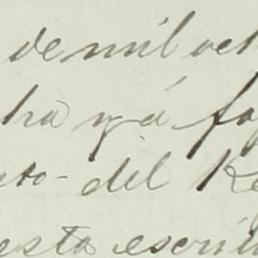 de mil och
ha y á fo
to - del Re
esta escrit